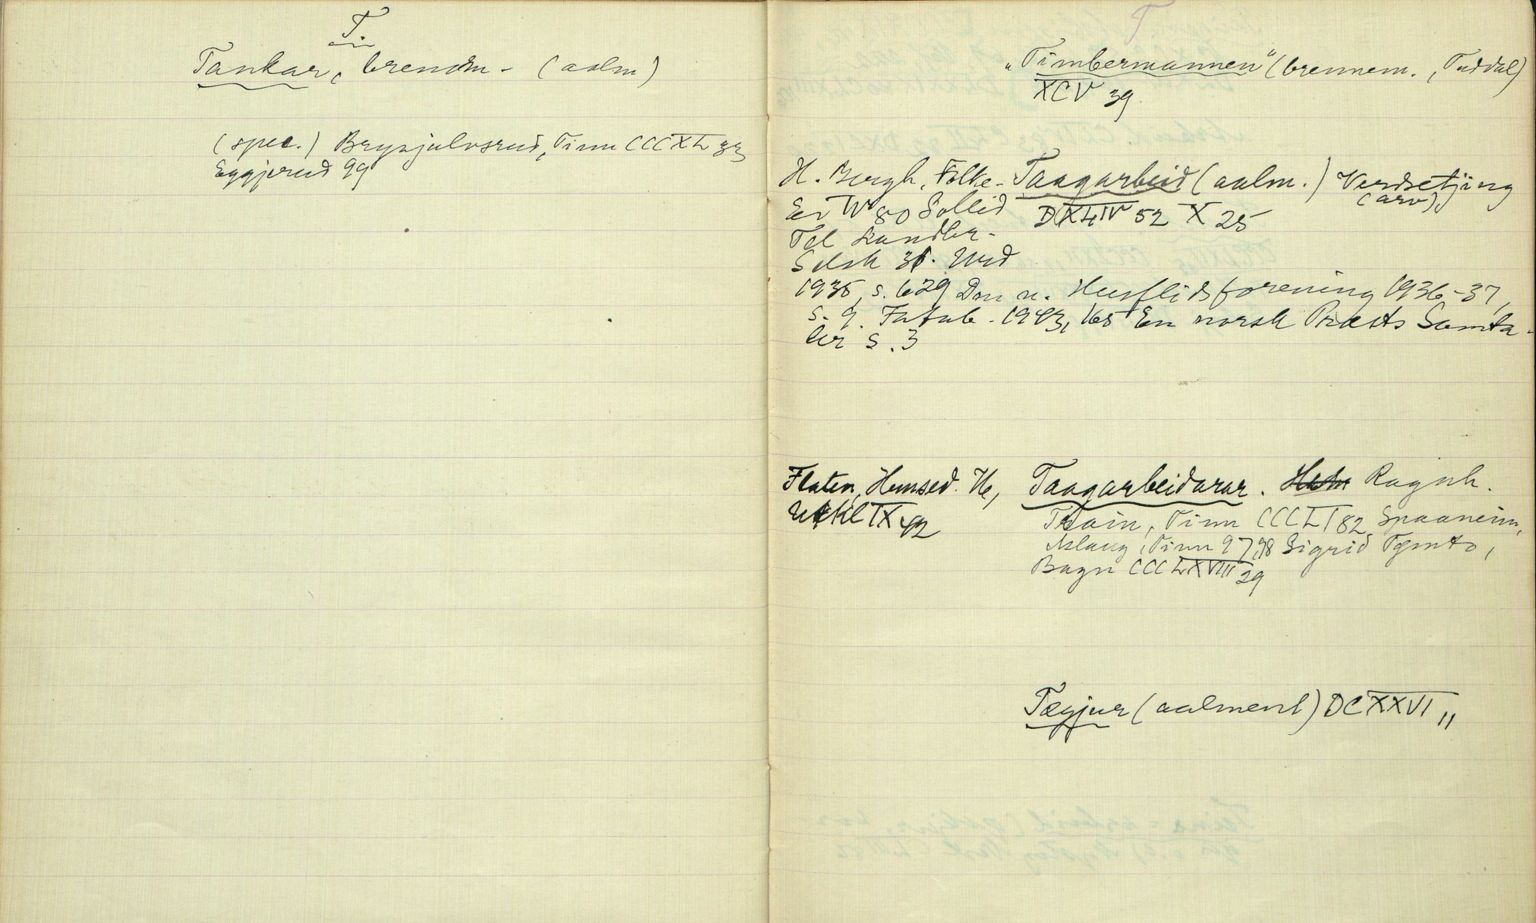 T
Tankar, brennm - (aalm)
(spec.) Brynjulvsrud, Tinn CCCXL 33
Eggjerud 99
T
"Timbermannen" (brennem., Tuddal)
XCV 39
H. Bergh, Folke- Taagarbeid (aalm.) Verdsetjing
Ev IV 80 Sollid (arv)
DXLIV 52 X 25
Tel Landbr-
Selsk 31. Urd
1935, s. 629 Den n. Husflidsforening 1936-37,
s. 9. 1943, 165 En norsk Præsts Samta-
ler s. 3
Flaten, Hemsed. He, Taagarbeidarar. Ragnh.
IX 42
Traain, Tinn CCCLI 82 Spaaneim,
Aslaug, Tinn 97, 98 Sigrid
Bagn CCCLXVIII 29
Tægjur (aalment) DCXXVI 11